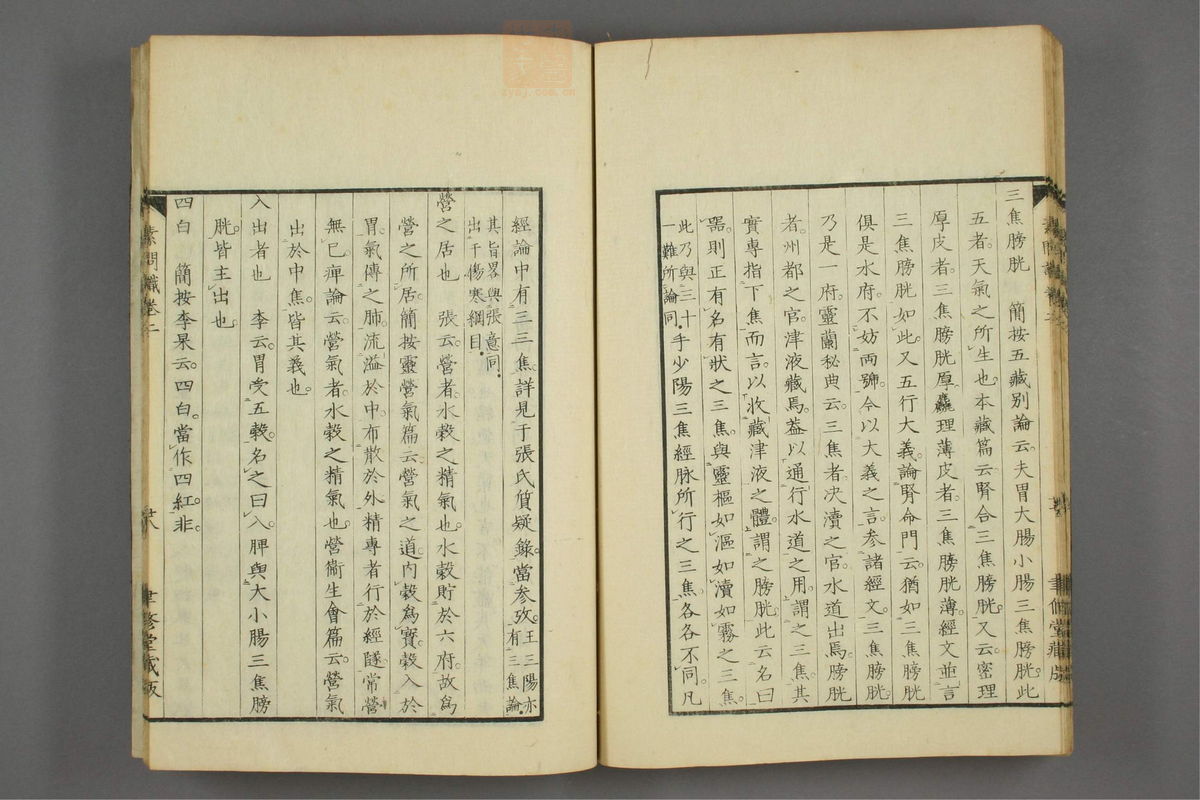 三焦膀胱　簡按五藏别論云夫胃大腸小腸三焦膀胱此
五者天氣之所生也本藏篇云腎合三焦膀胱又云密理
厚皮者三焦膀胱厚麤理薄皮者三焦膀胱薄經文並言
三焦膀胱如此又五行大義論腎命門云猶如三焦膀胱
俱是水府不妨兩號今以大義之言參諸經文三焦膀胱
乃是一府靈蘭秘典云三焦者决瀆之官水道出焉膀胱
者州都之官津液藏焉葢以通行水道之用謂之三焦其
實專指下焦而言以收藏津液之體謂之膀胱此云名曰
器則正有名有狀之三焦與靈樞如漚如瀆如霧之三焦
此乃與三十
一難所論同
手少陽三焦經脉所行之三焦各各不同凡
素問識卷二
聿修堂藏版
經論中有三三焦詳見于張氏質疑錄當參攷
王三陽亦
有三焦論
其旨畧與張意同
出于傷寒綱目
營之居也　張云營者水穀之精氣也水穀貯於六府故為
營之所居簡按靈營氣篇云營氣之道内穀為寳穀入於
胃氣傳之肺流溢於中布散於外精專者行於經隧常營
無已痺論云營氣者水穀之精氣也營衞生會篇云營氣
出於中焦皆其義也
入出者也　李云胃受五穀名之曰入脾與大小腸三焦膀
胱皆主出也
四白　簡按李杲云四白當作四紅非
素問識卷二
廿八
聿修堂藏版